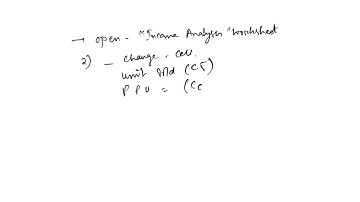 → open - "Income Analysis" worksheet
2) - change. cell.
unit sold (C5)
P P U = (C6